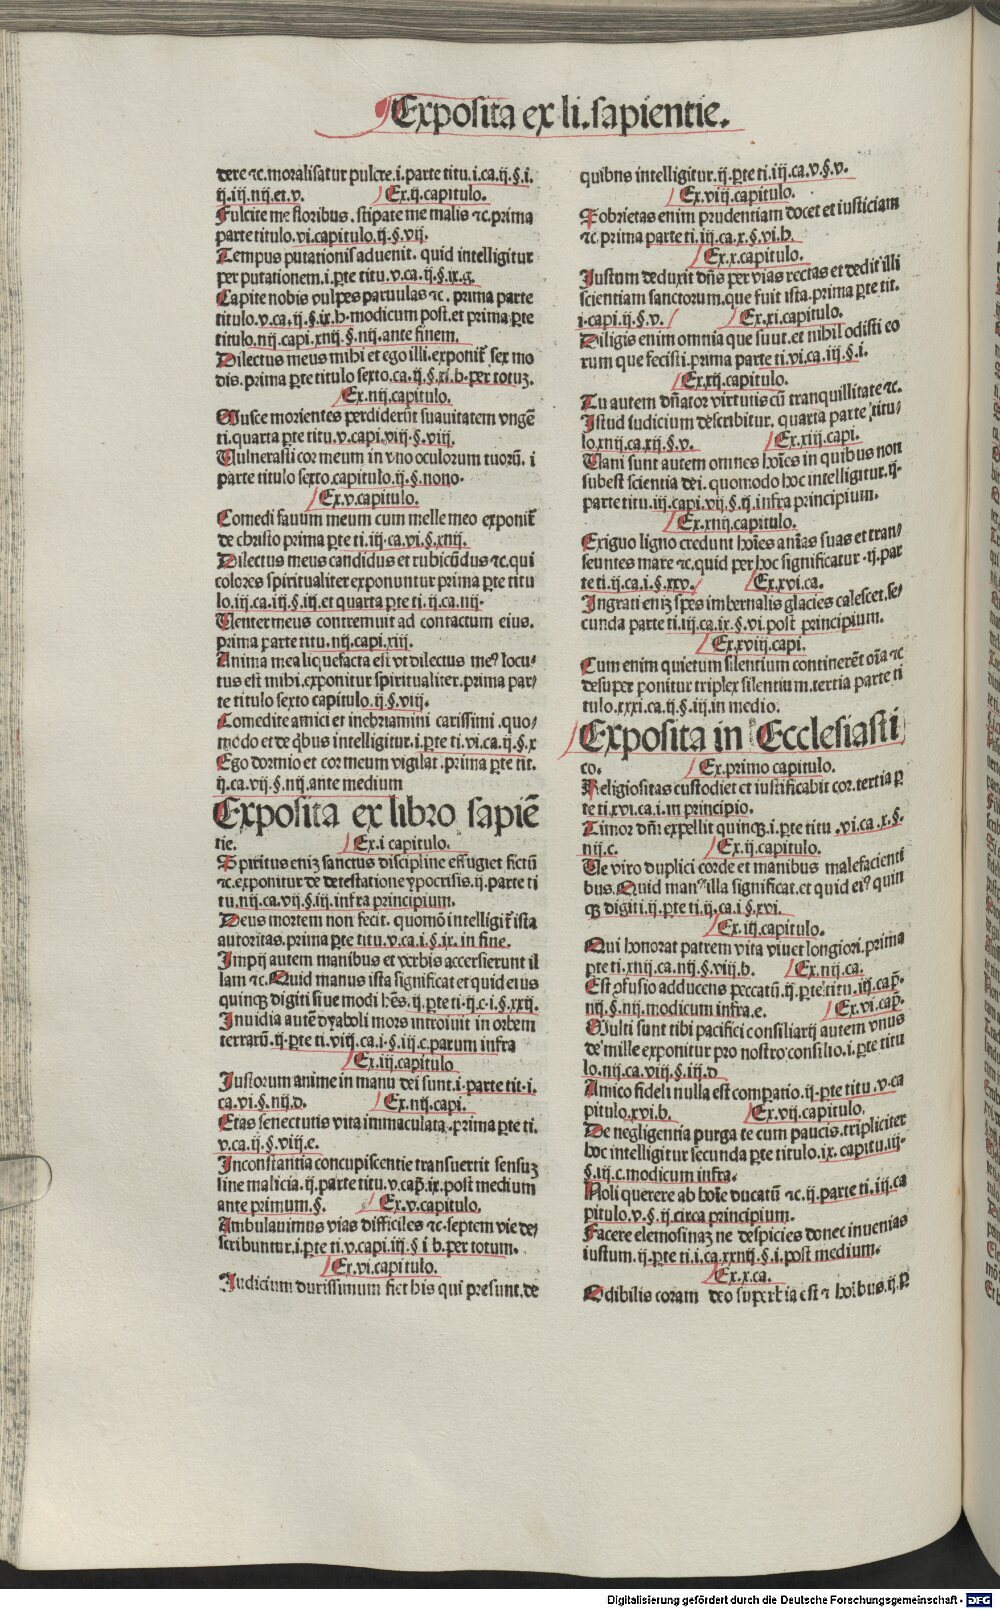 Exposita ex li. sapientie.
dere ⁊c. moralisatur pulcre. i. parte titu. i. ca. ij. §. i.
ij. iij. iiij. et. v. Ex. ij. capitulo.
Fulcite me floribus. stipate me malis ⁊c. prima
parte titulo. vi. capitulo. ij. §. vij.
Tempus putationis aduenit. quid intelligitur
per putationem. i. ꝑte titu. v. ca. ij. §. ix. g.
Capite nobis vulpes paruulas ⁊c. prima parte
titulo. v. ca. ij. §. ix. h. modicum post. et prima ꝑte
titulo. iiij. capi. xiiij. §. iiij. ante finem.
Dilectus meus mihi et ego illi. exponit᷑ sex mo
dis. prima ꝑte titulo sexto. ca. ij. §. xi. b. per totuꝫ.
Ex. iiij. capitulo.
Musce morientes perdiderūt suauitatem vngē
ti. quarta ꝑte titu. v. capi. viij. §. viij.
Vulnerasti cor meum in vno oculorum tuorū. i
parte titulo sexto. capitulo. ij. §. nono.
Ex. v. capitulo.
Comedi fauum meum cum melle meo exponit᷑
de christo prima ꝑte ti. iij. ca. vi. §. xiiij.
Dilectus meus candidus et rubicūdus ⁊c. qui
colores spiritualiter exponuntur prima ꝑte titu
lo. iij. ca. iij. §. iij. et quarta ꝑte ti. ij. ca. iiij.
Venter meus contremuit ad contactum eius.
prima parte titu. iiij. capi. xiij.
Anima mea liquefacta est vt dilectus meꝰ locu⸗
tus est mihi. exponitur spiritualiter. prima par⸗
te titulo sexto capitulo. ij. §. viij.
Comedite amici et inebriamini carissimi. quo⸗
modo et de q̇bus intelligitur. i. ꝑte ti. vi. ca. ij. §. x
Ego dormio et cor meum vigilat. prima ꝑte tit.
ij. ca. vij. §. iiij. ante medium
Exposita ex libro sapiē
tie. Ex. i capitulo.
Spiritus eniꝫ sanctus discipline effugiet fictū
⁊c. exponitur de detestatione ypocrisis. ij. parte ti
tu. iiij. ca. vij. §. iij. infra principium.
Deus mortem non fecit. quomō intelligit᷑ ista
autoritas. prima ꝑte titu. v. ca. i. §. ix. in fine.
Impij autem manibus et verbis accersierunt il
lam ⁊c. Quid manus ista significat et quid eius
quinqꝫ digiti siue modi hēs. ij. ꝑte ti. ij. c. i. §. xxij.
Inuidia autē dyaboli mors introiuit in orbem
terrarū. ij. ꝑte ti. viij. ca. i. §. iij. c. parum infra
Ex. iij. capitulo
Iustorum anime in manu dei sunt. i. parte tit. i.
ca. vi. §. iiij. d. Ex. iiij. capi.
Etas senectutis vita immaculata. prima ꝑte ti.
v. ca. ij. §. viij. e.
Inconstantia concupiscentie transuertit sensuꝫ
sine malicia. ij. parte titu. v. cap̄. ix. post medium
ante primum. §. Ex. v. capitulo.
Ambulauimus vias difficiles ⁊c. septem vie de⸗
scribuntur. i. ꝑte ti. v. capi. iij. § i b. per totum.
Ex. vi. capitulo.
Iudicium durissimum fiet his qui presunt. de
quibus intelligitur. ij. ꝑte ti. iij. ca. v. §. v.
Ex. viij. capitulo.
Sobrietas enim prudentiam docet et iusticiam
⁊c. prima parte ti. iij. ca. x. §. vi. b.
Ex. x. capitulo.
Iustum deduxit dn̄s per vias rectas et dedit illi
scientiam sanctorum. que fuit ista. prima ꝑte tit.
i. capi. ij. §. v. Ex. xi. capitulo.
Diligis enim omnia que sunt. et nihil odisti eo
rum que fecisti. prima parte ti. vi. ca. iij. §. i.
Ex. xij. capitulo.
Tu autem dn̄ator virtutis cū tranquillitate ⁊c.
Istud iudicium describitur. quarta parte titu⸗
lo. xiiij. ca. xij. §. v. Ex. xiij. capi.
Vani sunt autem omnes hoīes in quibus non
subest scientia dei. quomodo hoc intelligitur. ij.
parte titu. iij. capi. vij. §. ij. infra principium.
Ex. xiiij. capitulo.
Exiguo ligno credunt hoīes anīas suas et tran⸗
seuntes mare ⁊c. quid per hoc significatur. ij. par
te ti. ij. ca. i. §. xxv. Ex. xvi. ca.
Ingrati eniꝫ spes imbernalis glacies calescet. se⸗
cunda parte ti. iij. ca. ix. §. vi. post principium.
Ex. xviij. capi.
Cum enim quietum silentium continerēt oīa ⁊c
desuper ponitur triplex silentium. tertia parte ti
tulo. xxxi. ca. ij. §. iij. in medio.
Exposita in Ecclesiasti
co. Ex. primo capitulo.
Religiositas custodiet et iustificabit cor. tertia ꝑ
te ti. xvi. ca. i. in principio.
Timor dn̄i expellit quinqꝫ. i. ꝑte titu. vi. ca. x. §.
iiij. c. Ex. ij. capitulo.
Ve viro duplici corde et manibus malefacienti
bus. Quid manꝰ illa significat. et quid eiꝰ quin
qꝫ digiti. ij. ꝑte ti. ij. ca. i. §. xvi.
Ex. iij. capitulo.
Qui honorat patrem vita viuet longiori. prima
ꝑte ti. xiiij. ca. iiij. §. viij. b. Ex. iiij. ca.
Est ꝓfusio adducens peccatū. ij. ꝑte titu. iij. cap̄.
iiij. §. iiij. modicum infra. e. Ex. vi. cap̄.
Multi sunt tibi pacifici consiliarij autem vnus
de mille exponitur pro nostro consilio. i. ꝑte titu
lo. iiij. ca. viij. §. iij. d
Amico fideli nulla est comꝑatio. ij. ꝑte titu. v. ca
pitulo. xvi. b. Ex. vij. capitulo.
De negligentia purga te cum paucis. tripliciter
hoc intelligitur secunda ꝑte titulo. ix. capitu. iij.
§. iij. c. modicum infra.
Noli querere ab hoīe ducatū ⁊c. ij. parte ti. iij. ca
pitulo. v. §. ij. circa principium.
Facere elemosinaꝫ ne despicies donec inuenias
iustum. ij. ꝑte ti. i. ca. xxiiij. §. i. post medium.
Ex. x. ca.
Odibilis coram deo superbia est ⁊ hoībus. ij. ꝑ
Digitalisierung gefördert durch die Deutsche Forschungsgemeinschaft - DFG